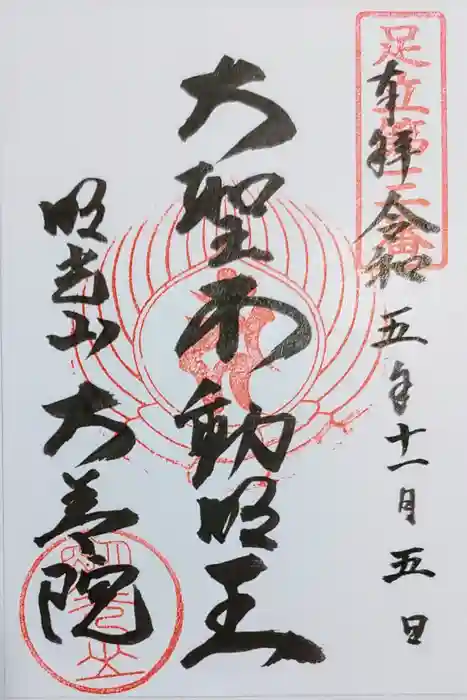 足立第三番
奉拝 令和五年十一月五日
大聖不動明王
明光山 大善院